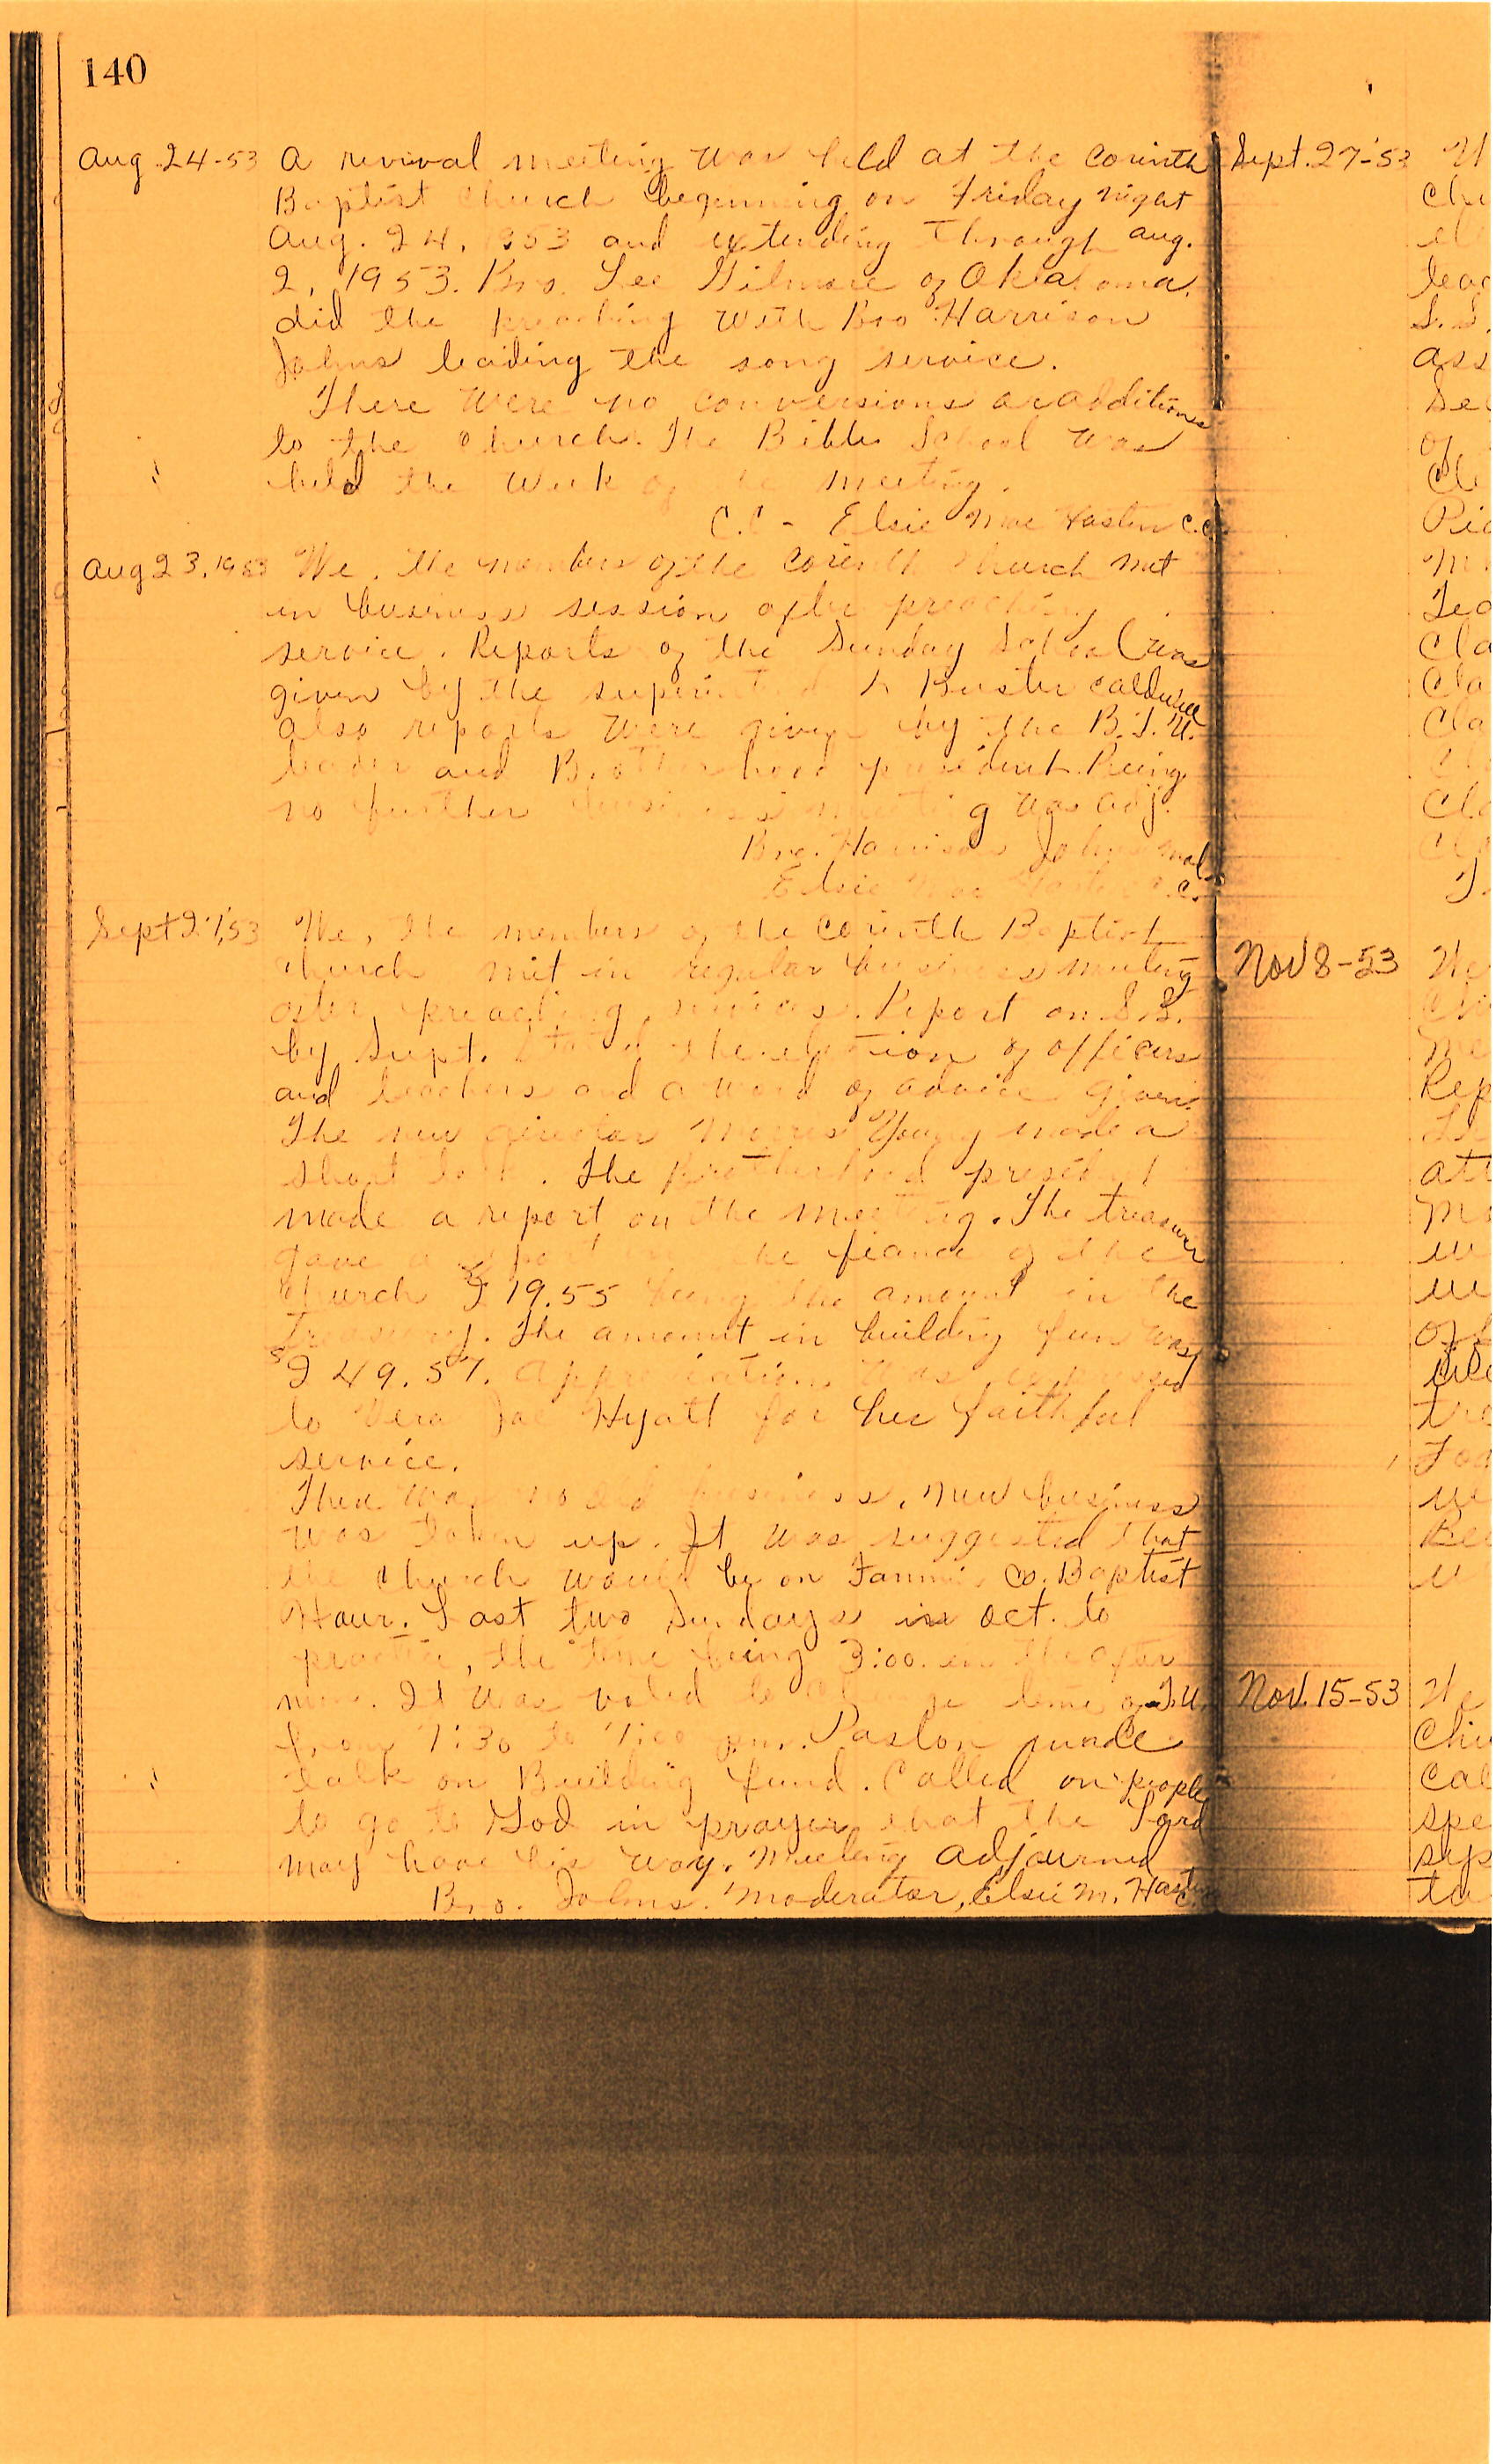 140
Aug. 24-53 A revival meeting was held at the Corinth
Baptist Church beginning on Friday night
Aug. 24, 1953 and extending through Aug.
2, 1953. Bro. Lee Gilmore of Oklahoma.
did the preaching with Bro Harrison
Johns leading the song service.
There were no conversions or additions
to the Church. The Bible School was
held the week of the meeting.
C.C - Elsie Mae Hasten C.C.
Aug 23, 1953 We, the members of the Corinth Church met
in business session after preaching
service. Reports of the Sunday School was
given by the superintendent Buster Caldwell
Also reports were given by the B.T.U.
leader and Brotherhood president. Being
no further business meeting was adj.
Bro. Harrison Johns mod.
Elsie Mae Hasten C.C.
Sept 27, 53 We, the members of the Corinth Baptist
Church met in regular business meeting
after preaching services. Report on S.S.
by Supt. the election of officers
and teachers and a word of advice given.
The new director Morris Young made a
short talk. The Brotherhood president
made a report on the meeting. The treasurer
gave a report the fiance of the
Church 19.55 being the amount in the
treasury. The amount in building fun was
49.57. Appreciation was expressed
to Vera Jae Hyatt for her faithful
service.
There was no old business, new business
was taken up. It was suggested that
the Church would be on Fannin Co. Baptist
Hour. Last two Sundays in Oct. to
practice, the time being 3:00. in the after
noon. It was voted to change time of T.U.
from 7:30 to 7:00 p.m. Pastor made
talk on Building fund. Called on people
to go to God in prayer that the Lord
may have his way. Meeting adjourned
Bro. Johns. Moderator, Elsie M. Hasten
Sept. 27-53
Chu
leac
S.S.
ass
Sec
of
Cle
Pia
Tea
Cla
Cla
Cla
Cla
Nov 8-53 We
Chu
me
Rep
att
of
tre
Nov. 15-53 We
Chu
Cal
spe
sep
to